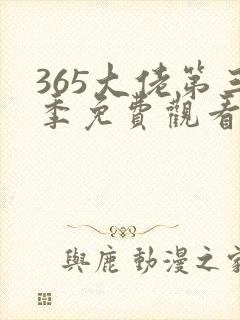 365大佬第三
季免費觀看
與鹿動漫之家